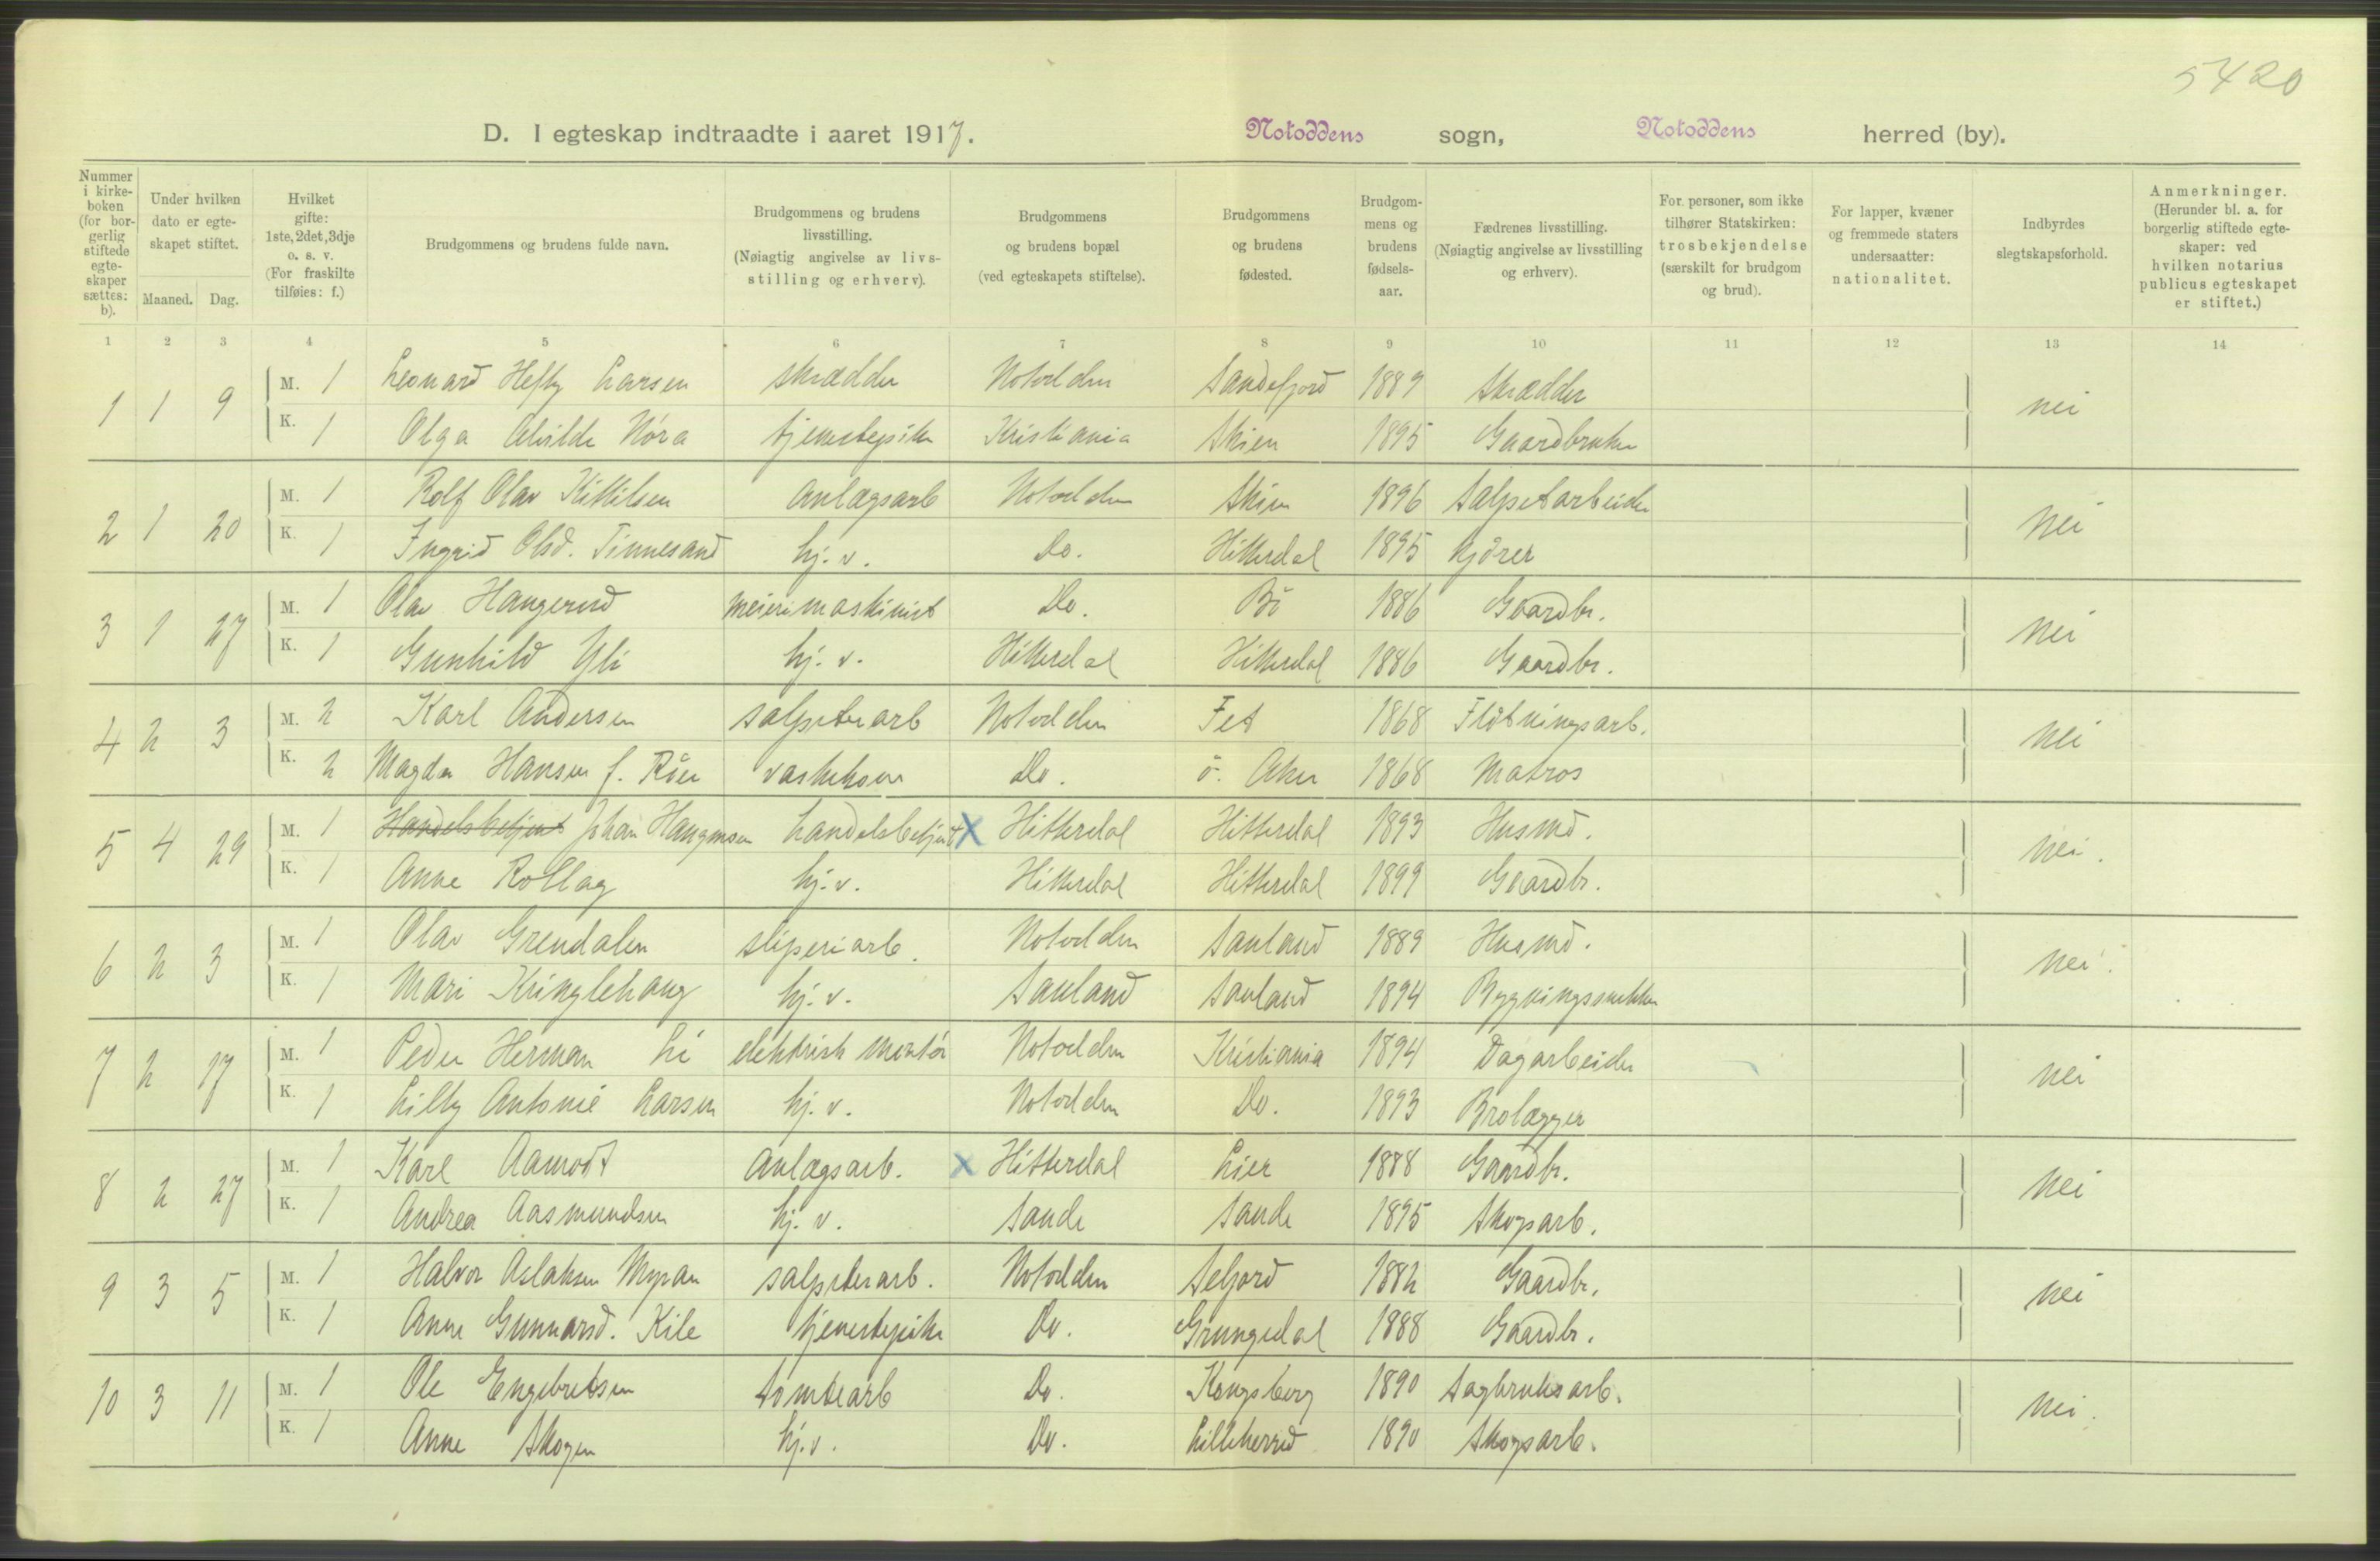 5420
D. I egteskap indtraadte i aaret 1917. Notoddens sogn, Notoddens herred (by).
Nummer i kirkeboken (for borgerlig stiftede egteskaper sættes: b).
Under hvilken dato er egteskapet stiftet.
Maaned. Dag.
Hvilket gifte: 1ste, 2det, 3dje o. s. v. (For fraskilte tilføies: f.)
Brudgommens og brudens fulde navn.
Brudgommens og brudens livsstilling. (Nøiagtig angivelse av livsstilling og erhverv).
Brudgommens og brudens bopæl (ved egteskapets stiftelse).
Brudgommens og brudens fødested.
Brudgommens og brudens fødselsaar.
Fædrenes livsstilling. (Nøiagtig angivelse av livsstilling og erhverv).
For personer, som ikke tilhører Statskirken: trosbekjendelse (særskilt for brudgom og brud).
For lapper, kvæner og fremmede staters undersaatter: nationalitet.
Indbyrdes slegtskapsforhold.
Anmerkninger. (Herunder bl. a. for borgerlig stiftede egteskaper: ved hvilken notarius publicus egteskapet er stiftet.)
1 2 3 4 5 6 7 8 9 10 11 12 13 14
1 1 9 M. 1 Leonard Hefty Larsen skrædder Notodden Sandefjord 1889 Skrædder nei
K. 1 Olga Alvilde Nóra tjenestepike Kristiania Skien 1895 Gaardbruker
2 1 20 M. 1 Rolf Olav Kittilsen Anlægsarb Notodden Skien 1896 Salpetarbeider nei
K. 1 Ingrid Olsd. Tinnesand hj. v. Do. Hitterdal 1895 Kjörer
3 1 27 M. 1 Olav Haugerud meierimaskinist Do. Bö 1886 Gaardbr. nei
K. 1 Gunhild Yli hj. v. Hitterdal Hitterdal 1886 Gaardbr.
4 2 3 M. 2 Karl Andersen salpeterarb Notodden Fet 1868 Flötningsarb. nei
K. 2 Magda Hansen f. Röer vaskekone Do. ö. Aker 1868 Matros
5 4 29 M. 1 Handelsbetjent Johan handelsbetjent X Hitterdal Hitterdal 1893 Husmd. nei.
K. 1 Anne Rollag hj. v. Hitterdal Hitterdal 1899 Gaardbr.
6 2 3 M. 1 Olav Grendalen sliperiarb. Notodden Sauland 1889 Husmd. nei.
K. 1 Mari Kringlehaug hj. v. Sauland Sauland 1894 Bygningssnekker
7 2 17 M. 1 Peder Herman Li elektrisk montör Notodden Kristiania 1894 Dagarbeider nei
K. 1 Lilly Antonie Larsen hj. v. Notodden Do. 1893 Brolægger
8 2 27 M. 1 Karl Aamodt Anlægsarb. X Hitterdal Lier 1888 Gaardbr. nei
K. 1 Andrea Aasmundsen hj. v. Sande Sande 1895 Skogsarb.
9 3 5 M. 1 Halvor Aslaksen Myran salpeterarb. Notodden Seljord 1882 Gaardbr. nei
K. 1 Anne Gunnarsd. Kile tjenestepike Do. Grungedal 1888 Gaardbr.
10 3 11 M. 1 Ole Engebretsen tomtearb Do. Kongsberg 1890 Sagbruksarb. nei.
K. 1 Anne Skogen hj. v. Do. Lilleherred 1890 Skogsarb.